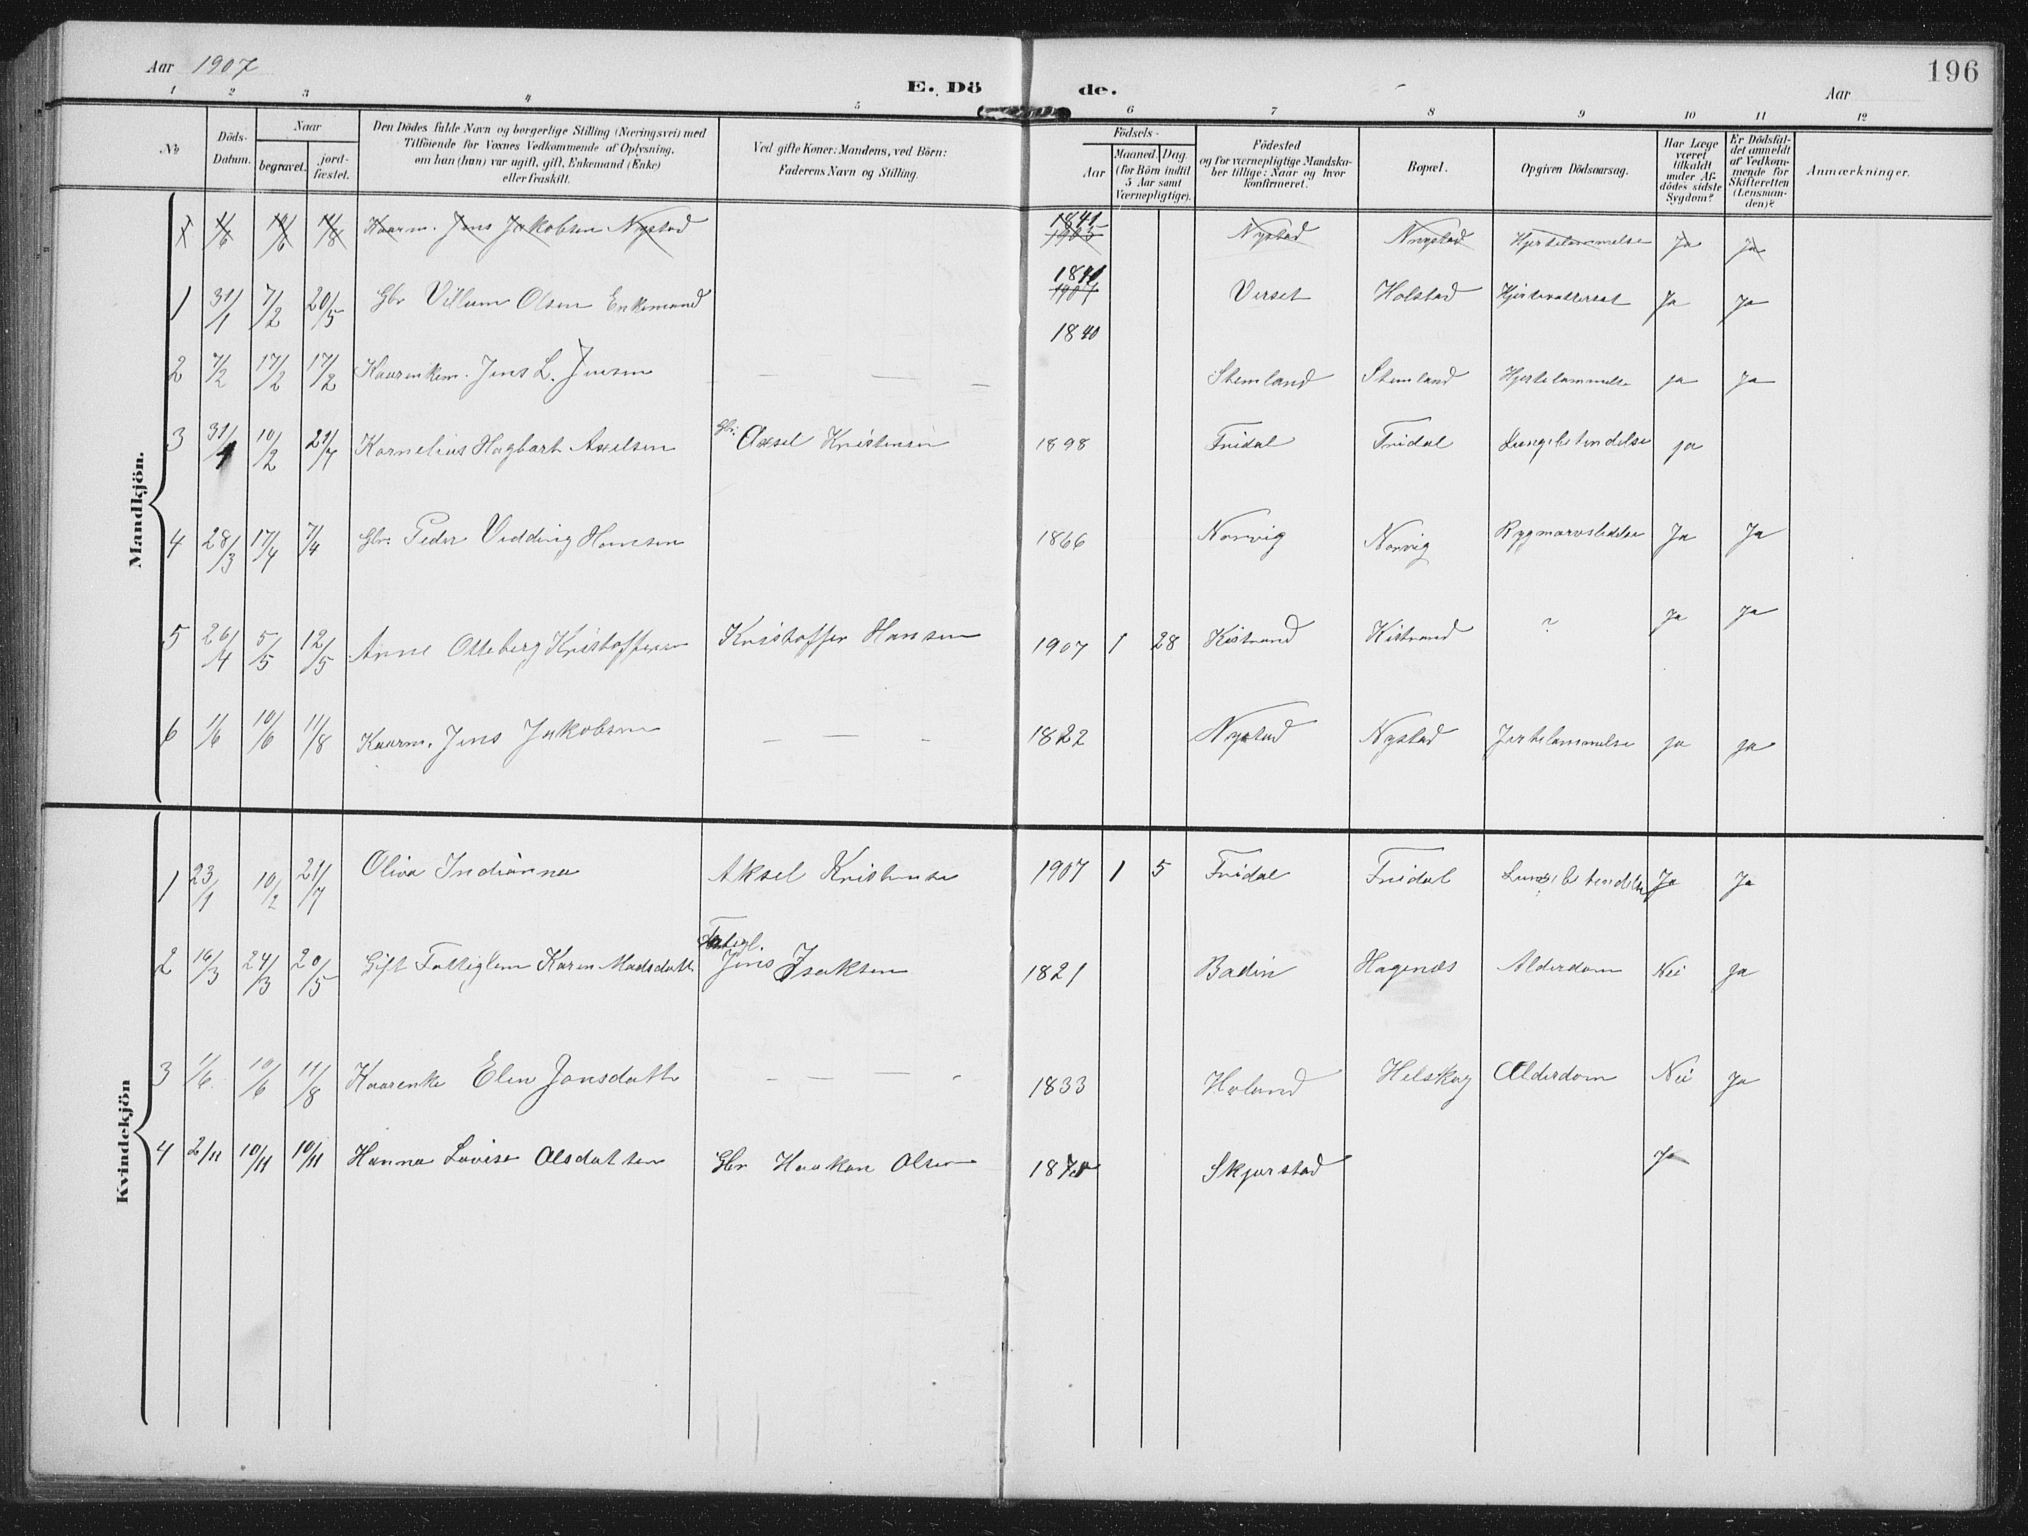 Aar 1907
E. Dö de.
Aar
196
1 2 3 4 5 6 7 8 9 10 11 12
No.
Döds-Datum.
Naar
begravet.
jord-fæstet.
Den Dödes fulde Navn og borgerlige Stilling (Næringsvei) med
Tilföiende for Voxnes Vedkommende af Oplysning,
om han (hun) var ugift, gift, Enkemand (Enke)
eller fraskilt.
Ved gifte Koner: Mandens, ved Börn:
Faderens Navn og Stilling.
Födsels-
Aar
Maaned. Dag.
(for Börn indtil
5 Aar samt
Værnepligtige).
Födested
og for værnepligtige Mandska-
ber tillige: Naar og hvor
konfirmeret.
Bopæl.
Opgiven Dödsaarsag.
Har Læge
været
tilkaldt
under Af-
dödes sidste
Sygdom?
Er Dödsfal-
det anmeldt
af Vedkom-
mende for
Skifteretten
(Lensman-
den)?
Anmærkninger.
Mandkjön.
1 1/6 10/6 11/8 Kaarm. Jens Jakobsen Nystad 1841 Nystad Nystad Hjertelammelse Ja Ja
1 31/1 7/2 20/5 Gbr Villum Olsen Enkemand 1841 1907 Verset Holstad Ja Ja
1840
2 7/2 17/2 17/2 Kaarenkem. Jens L. Jensen — — — Stemland Stemland Hjertelammelse ja Ja
3 31/1 10/2 21/7 Kornelius Hagbart Axelsen Gbr. Axsel Kristensen 1898 Fridal Fridal Lungebetendelse ja
4 28/3 17/4 7/4 Gbr. Peder Vedding Hansen 1866 Norvig Norvig Rygmarvslidelse Ja Ja
5 26/4 5/5 12/5 Anne Otteberg Kristoffersen Kristoffer Hansen 1907 1 28 Kistrand Kistrand ? Ja Ja
6 1/6 10/6 11/8 Kaarm. Jens Jakobsen — — - 1822 Nystad Nystad Jertelammelse ja ja
Kvindekjön
1 23/1 10/2 21/7 Oliva Indianna Aksel Kristensen 1907 1 5 Fridal Fridal Lungebetendelse Ja Ja
2 16/3 24/3 20/5 Gift Fattiglem Karen Madsdatt Fatigl. Jens Isaksen 1821 Badin Hagenæs Alderdom Nei Ja
3 1/6 10/6 11/8 Kaarenke Elen Jonsdatt — — - 1833 Holand Helskog Alderdom Nei Ja
4 2/11 10/11 10/11 Hanna Lovise Olsdatter Gbr Haakon Olsen Skjerstad Ja